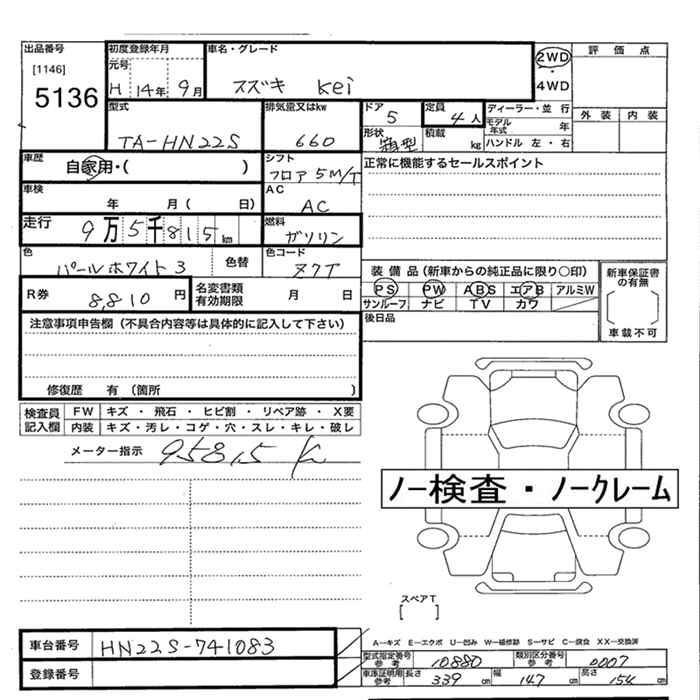 出品番号 初度登録年月 車名・グレード 2WD 評価点
[1146] 元号 ・
5136 H 14年 9月 スズキ Kei 4WD
型式 排気量又はkw ドア 定員 ディーラー・並行 外装 内装
TA-HN22S 660 5 4人 モデル年式 年
形状 箱型 積載 kg ハンドル 左・右
車歴 自家用・( ) シフト フロア 5M/T 正常に機能するセールスポイント
車検 年 月( 日) AC AC
走行 9万5千815km 燃料 ガソリン
色 パールホワイト3 色替 色コード Z7T
装備品(新車からの純正品に限り○印) 新車保証書の有無
R券 8,810円 名変書類有効期限 月 日 PS PW ABS エアB アルミW
サンルーフ ナビ TV カワ
注意事項申告欄(不具合内容等は具体的に記入して下さい) 後日品 車載不可
修復歴 有(箇所 )
検査員記入欄 FW キズ・飛石・ヒビ割・リペア跡・X要
内装 キズ・汚レ・コゲ・穴・スレ・キレ・破レ
メーター指示 95815 K
ノー検査・ノークレーム
スペアT
[ ]
A―キズ E―エクボ U―凹み W―補修跡 S―サビ C―腐食 XX―交換済
車台番号 HN22S-741083 型式指定番号参考 10880 類別区分番号参考 0007
登録番号 車庫証明用参考 長さ 339cm 幅 147cm 高さ 154cm